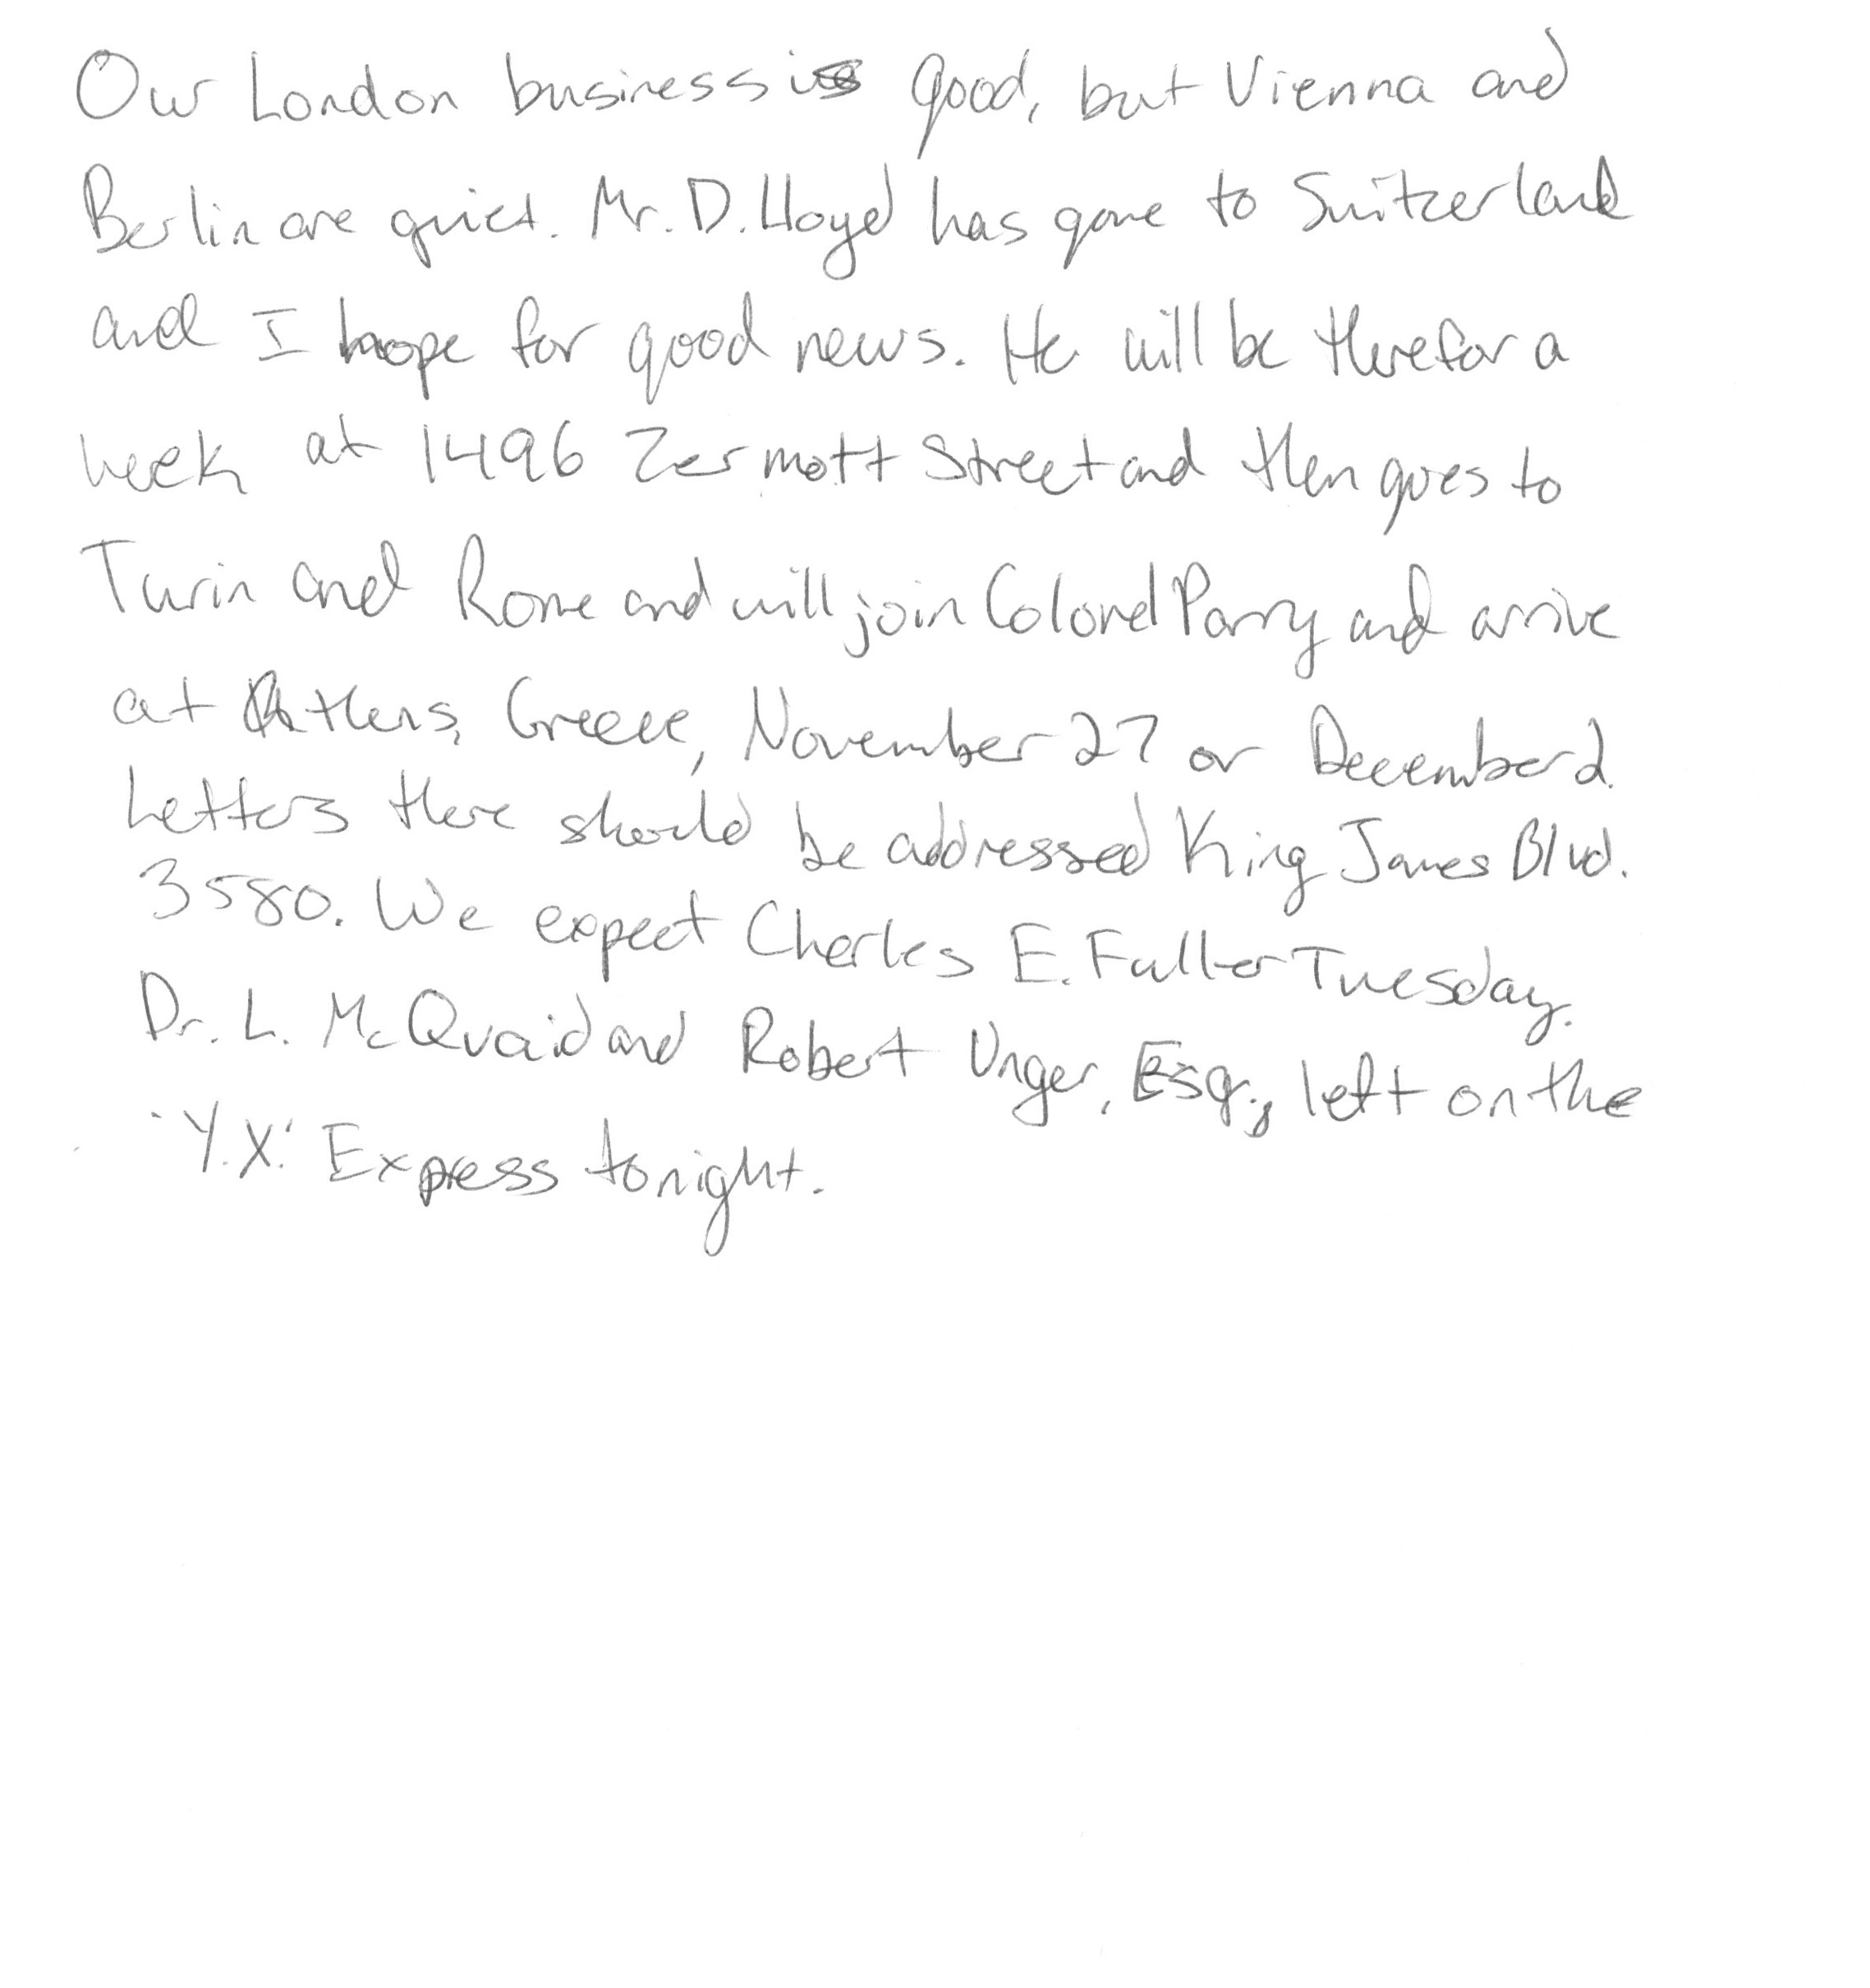 Our London business is good, but Vienna and
Berlin are quiet. Mr. D. Lloyd has gone to Switzerland
and I hope for good news. He will be there for a
week at 1496 Zermott Street and then goes to
Turin and Rome and will join Colonel Parry and arrive
at Athens, Greece, November 27 or December 2.
Letters there should be addressed King James Blvd.
3580. We expect Charles E. Fuller Tuesday.
Dr. L. McQuaid and Robert Unger, Esq., left on the
'Y.X.' Express tonight.